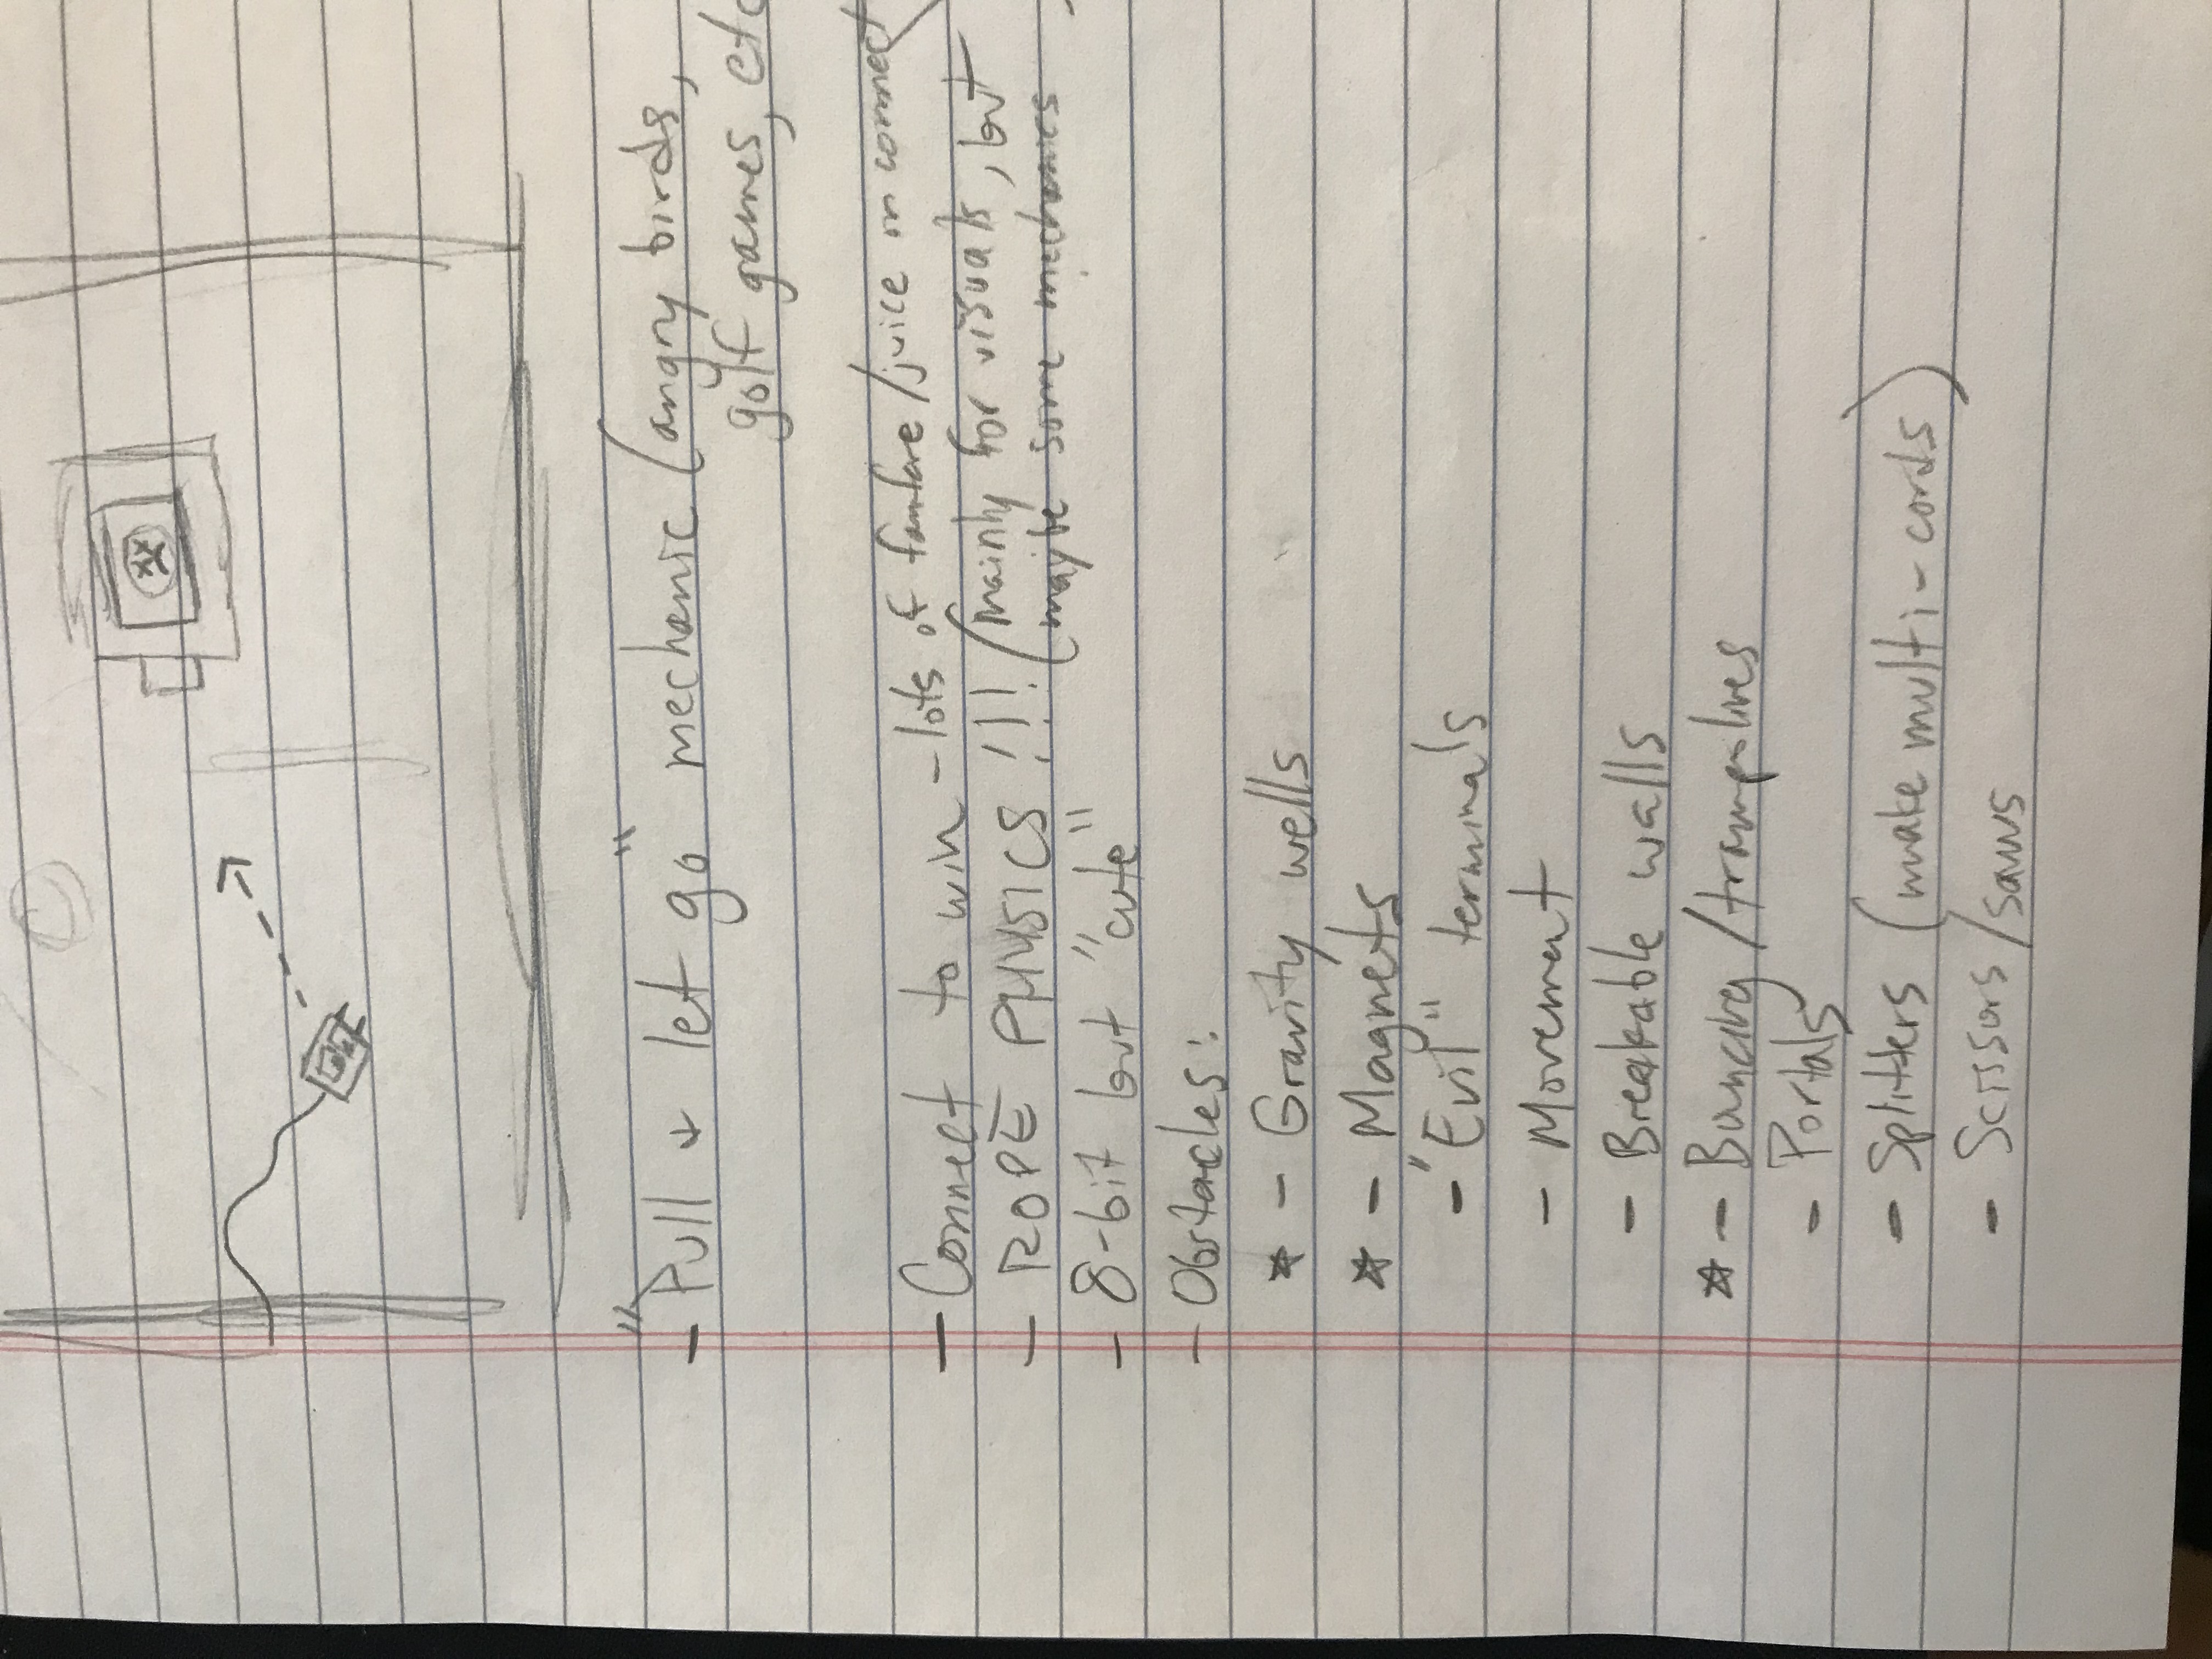 - "Pull & let go" mechanic (angry birds,
golf games, etc
- Connect to win - lots of fanfare/juice on connect
- ROPE PHYSICS!!! (mainly for visuals, but
maybe some mechanics
- 8-bit but "cute"
- Obstacles:
☆ - Gravity wells
☆ - Magnets
- "Evil" terminals
- Movement
- Breakable walls
☆ - Bouncing/trampolines
- Portals
- Splitters (make multi-cords)
- Scissors/saws